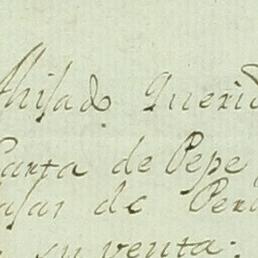 Ahijado Querid
Carta de Pepe
asar de Per
su venta: